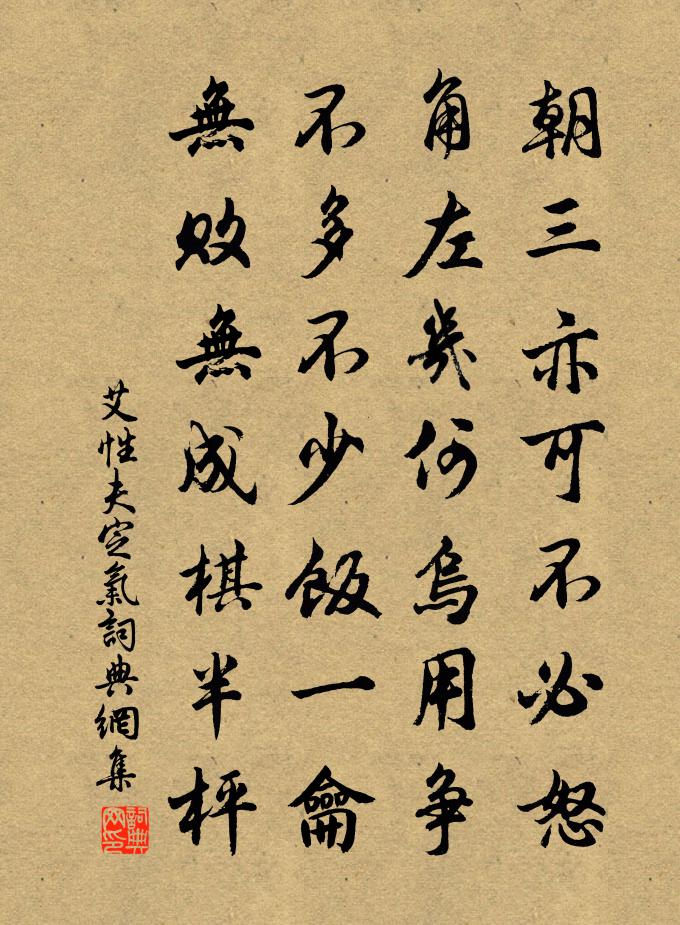 朝三亦可不必怒
角左幾何烏用爭
不多不少飯一龠
無敗無成棋半枰
艾性夫定氣詞典網集
詞典網印